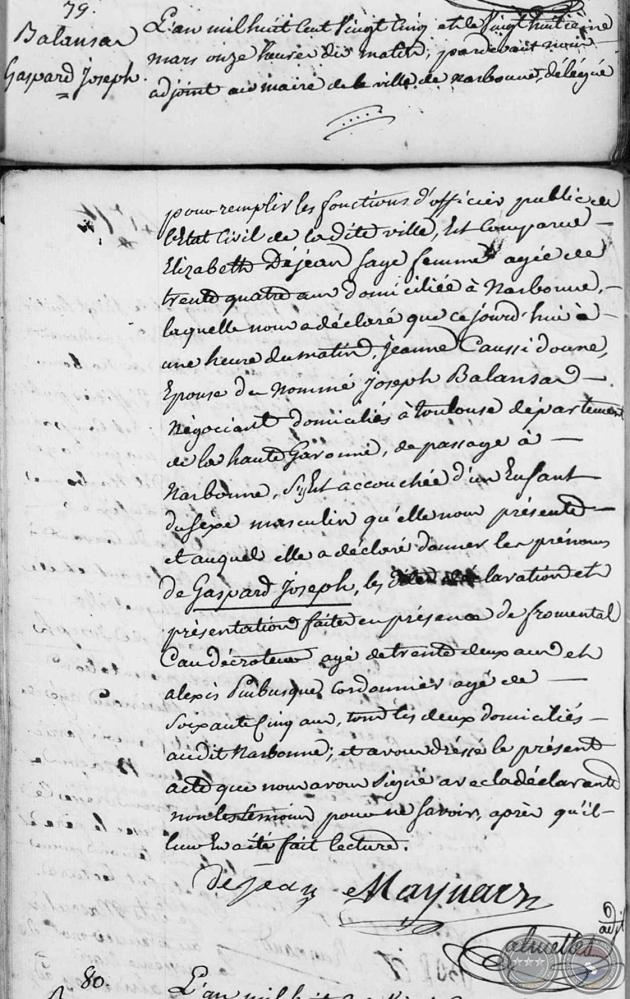 79.
Balansa
Gaspard Joseph.
L'an mil huit cent vingt cinq et le vingt huitieme
mars onze heures du matin; pardevant nous
adjoint au maire de la ville de Narbonne, délégué
pour remplir les fonctions d'officier public de
l'Etat Civil de la dite ville, Est Comparue —
Elizabeth Dejean sage femme agée de
trente quatre ans domiciliée à Narbonne, —
laquelle nous a déclaré que ce jourd'hui à —
une heure du matin, Jeanne Caussidoune,
Epouse du Nommé Joseph Balansa —
Négociant domiciliés à toulouse département
de la haute Garonne, de passage à —
Narbonne, s'y Est accouchée d'un Enfant
du sexe masculin qu'elle nous présente —
et auquel elle a déclaré donner les prénoms
de Gaspard Joseph, les déclaration et
présentation faites en présence de fromental
décroteur agé de trente deux ans et
alexis Puibusque, Cordonnier agé de —
soixante Cinq ans, tous les deux domiciliés —
audit Narbonne; et avons dressé le présent
acte que nous avons signé avec la déclarante
non les temoins pour ne savoir, après qu'il
leur En a été fait lecture.
dejean Maynard
adjt
Calmettes
80.
L'an mil huit